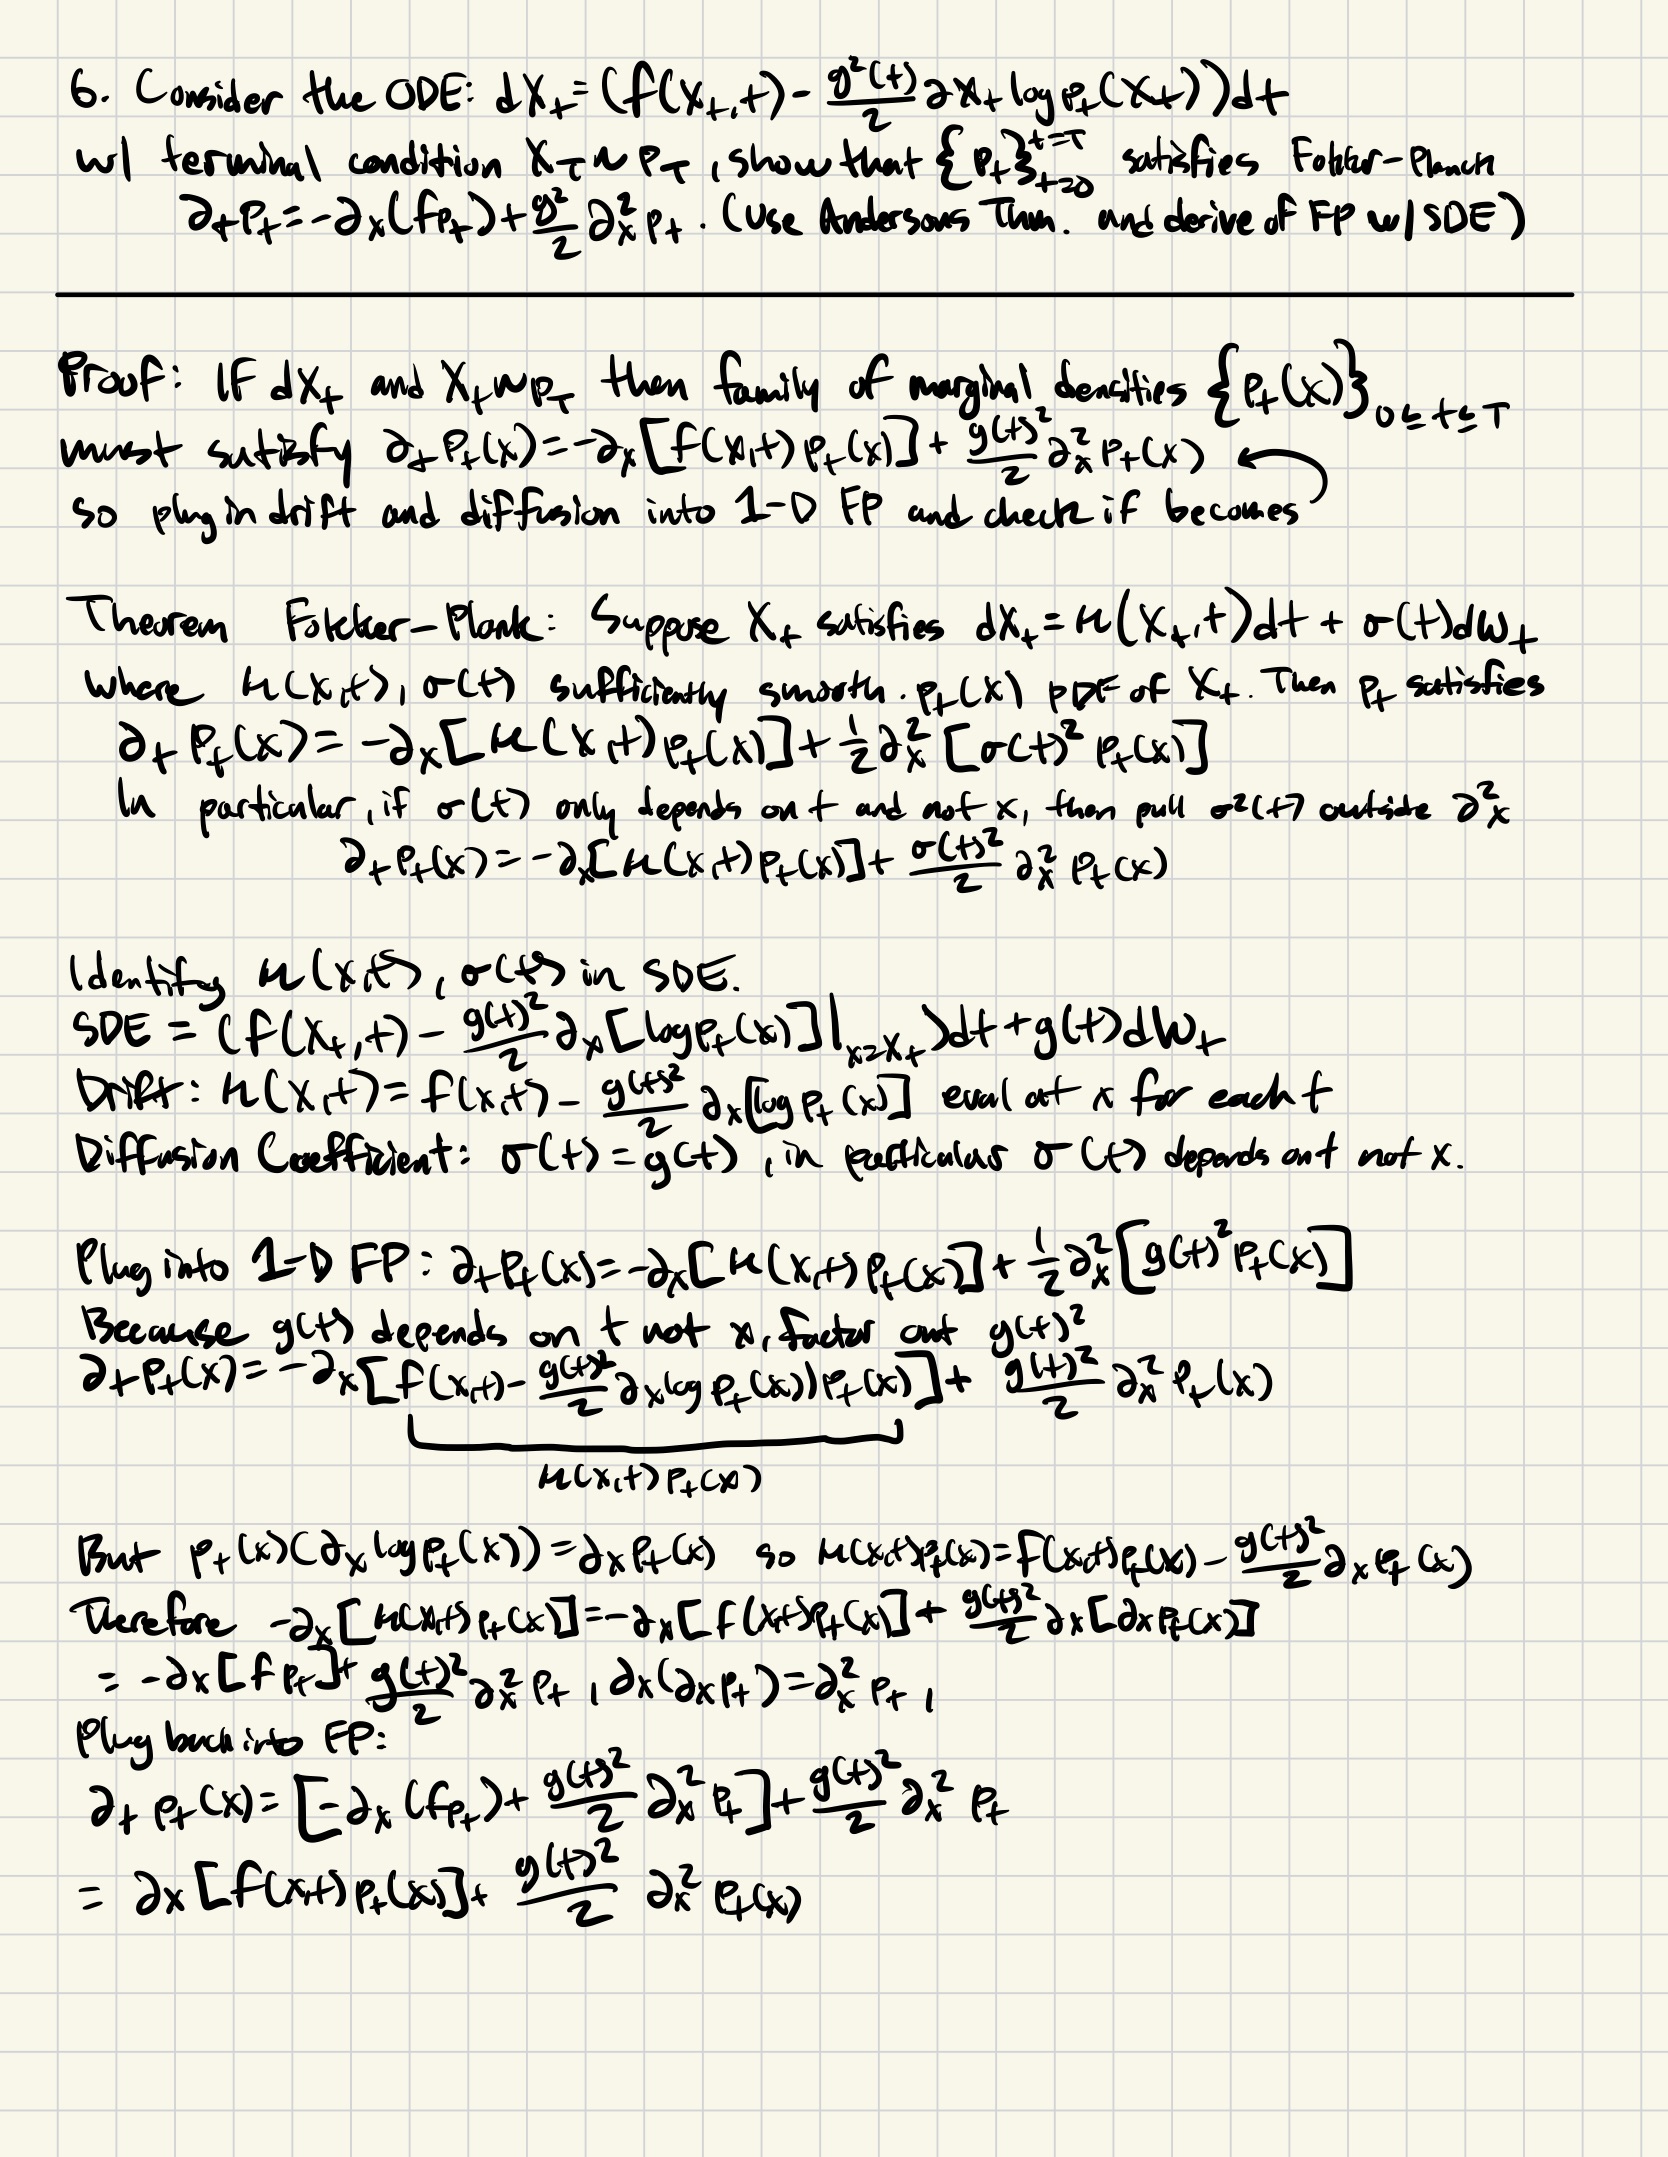 6. Consider the ODE: dX_t = (f(X_t,t) - g²(t)/2 ∂x_t log p_t(X_t))dt
w/ terminal condition X_T ~ P_T, show that {p_t}_{t=0}^{t=T} satisfies Fokker-Planck
∂_t p_t = -∂_x(fp_t) + g²/2 ∂_x² p_t. (Use Andersons Thm. and derive of FP w/ SDE)
Proof: IF dX_t and X_t ~ p_T then family of marginal densities {p_t(x)}_{0≤t≤T}
must satisfy ∂_t p_t(x) = -∂_x[f(x,t) p_t(x)] + g(t)²/2 ∂_x² p_t(x) ←
so plug in drift and diffusion into 1-D FP and check if becomes
Theorem Fokker-Plank: Suppose X_t satisfies dX_t = μ(X_t,t)dt + σ(t)dW_t
where μ(x,t), σ(t) sufficiently smooth. p_t(x) PDF of X_t. Then p_t satisfies
∂_t p_t(x) = -∂_x[μ(x,t) p_t(x)] + 1/2 ∂_x² [σ(t)² p_t(x)]
In particular, if σ(t) only depends on t and not x, then pull σ²(t) outside ∂_x²
∂_t p_t(x) = -∂_x[μ(x,t) p_t(x)] + σ(t)²/2 ∂_x² p_t(x)
Identify μ(x,t), σ(t) in SDE.
SDE = (f(X_t,t) - g(t)²/2 ∂_x[log p_t(x)]|_{x=X_t})dt + g(t)dW_t
Drift: μ(x,t) = f(x,t) - g(t)²/2 ∂_x[log p_t(x)] eval at x for each t
Diffusion Coefficient: σ(t) = g(t), in particular σ(t) depends on t not x.
Plug into 1-D FP: ∂_t p_t(x) = -∂_x[μ(x,t) p_t(x)] + 1/2 ∂_x² [g(t)² p_t(x)]
Because g(t) depends on t not x, factor out g(t)²
∂_t p_t(x) = -∂_x[f(x,t) - g(t)²/2 ∂_x log p_t(x)) p_t(x)] + g(t)²/2 ∂_x² p_t(x)
μ(x,t) p_t(x)
But p_t(x)(∂_x log p_t(x)) = ∂_x p_t(x) so μ(x,t)p_t(x) = f(x,t)p_t(x) - g(t)²/2 ∂_x p_t(x)
Therefore -∂_x[μ(x,t) p_t(x)] = -∂_x[f(x,t)p_t(x)] + g(t)²/2 ∂_x[∂_x p_t(x)]
= -∂_x[f p_t] + g(t)²/2 ∂_x² p_t, ∂_x(∂_x p_t) = ∂_x² p_t,
Plug back into FP:
∂_t p_t(x) = [-∂_x(fp_t) + g(t)²/2 ∂_x² p_t] + g(t)²/2 ∂_x² p_t
= ∂_x[f(x,t) p_t(x)] + g(t)²/2 ∂_x² p_t(x)